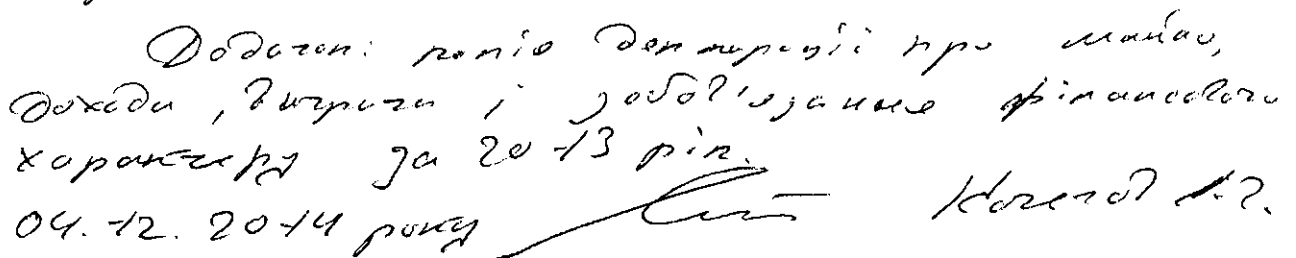 Додаток: копія декларації про майно,
доходи, витрати і зобов'язання фінансового
характеру за 2013 рік.
04.12.2014 року